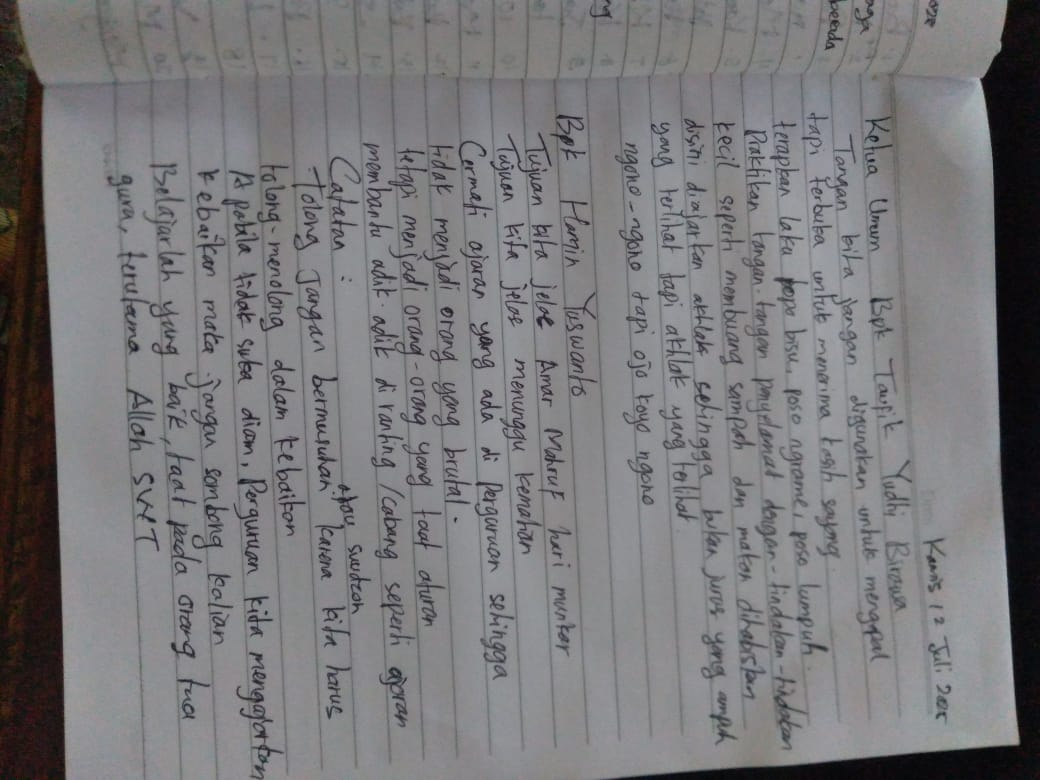 Kamis, 2 Juli 2025
Ketua Umum Bpk Taufik Yudhi Birawa
Tangan kita jangan digunakan untuk mengepal
tapi terbuka untuk menerima kasih sayang.
terapkan laku topo bisu, poso ngrame, poso lumpuh.
Praktikan tangan-tangan penyelamat dengan-tindakan-tindakan
kecil seperti membuang sampah dan makan dihabiskan
disini diajarkan akhlak sehingga bukan jurus yang ampuh
yang terlihat tapi akhlak yang terlihat.
ngono-ngono tapi ojo koyo ngono
Bpk Hamin Yuswanto
Tujuan kita jelas Amar Mahruf nahi munkar
Tujuan kita jelas menunggu kematian
Cermati ajaran yang ada di perguruan sehingga
tidak menjadi orang yang brutal.
tetapi menjadi orang-orang yang taat aturan
membantu adik adik di ranting / cabang seperti ajaran
Catatan :
suudzon
Tolong Jangan bermusuhan atau karena kita harus
tolong-menolong dalam kebaikan
Apabila tidak suka diam, Perguruan kita mengajarkan
kebaikan maka jangan sombong kalian
Belajarlah yang baik, taat pada orang tua
guru, terutama Allah SWT